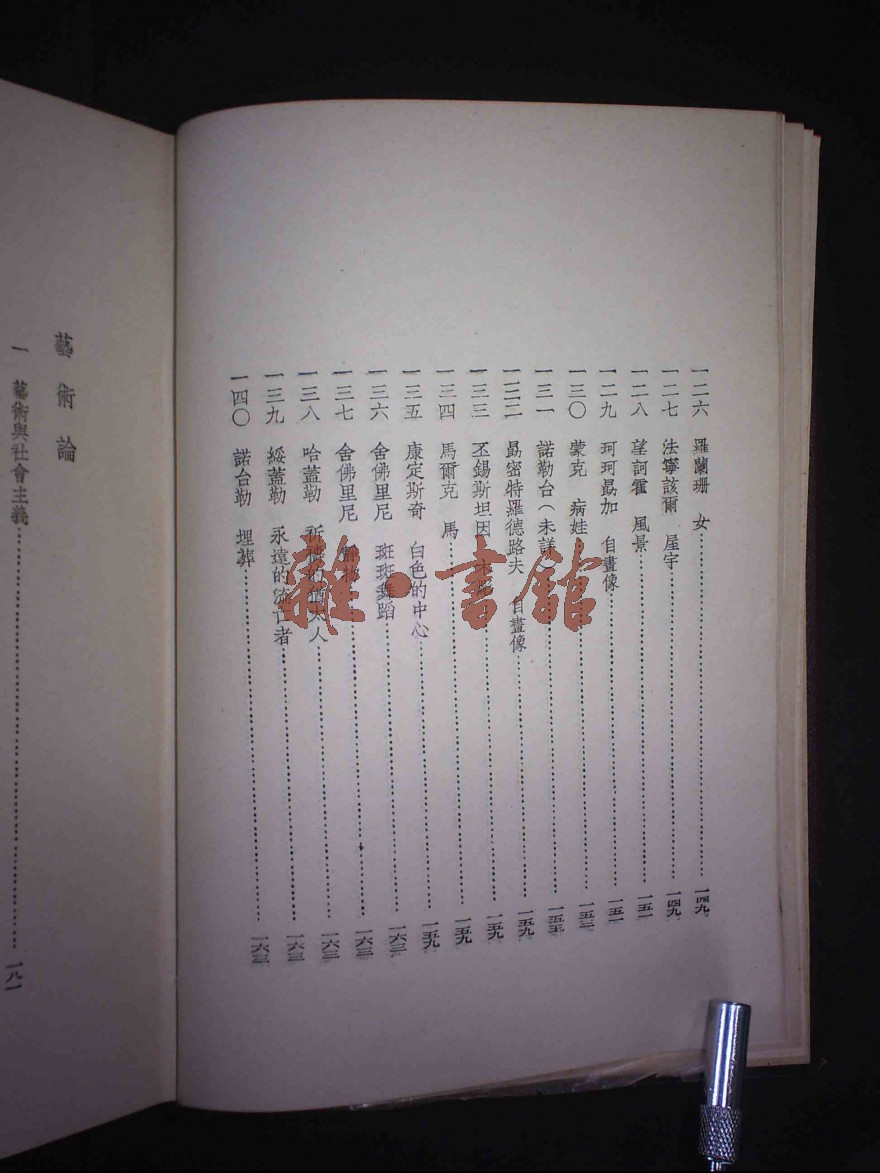 一二六 羅蘭珊 女………一四九
一二七 法寧該爾 屋宇………一四九
一二八 望訶霍 風景………一五一
一二九 珂珂勗加 自畫像………一五一
一三〇 蒙克 病娃………一五三
一三一 諾勒台(未詳)………一五五
一三二 勗密特羅德路夫 自畫像………一五九
一三三 丕錫斯坦因………一五九
一三四 馬爾克 馬………一五九
一三五 康定斯奇 白色的中心………一五九
一三六 舍佛里尼 斑斑舞蹈………一六三
一三七 舍佛里尼 靜物………一六三
一三八 哈蓋勒 祈禱的猶太人………一六三
一三九 綏蓋勒 永遠的流亡者………一六三
一四〇 諾台勒 埋葬………一六三
藝術論
一 藝術與社會主義………一八一
雜·書館